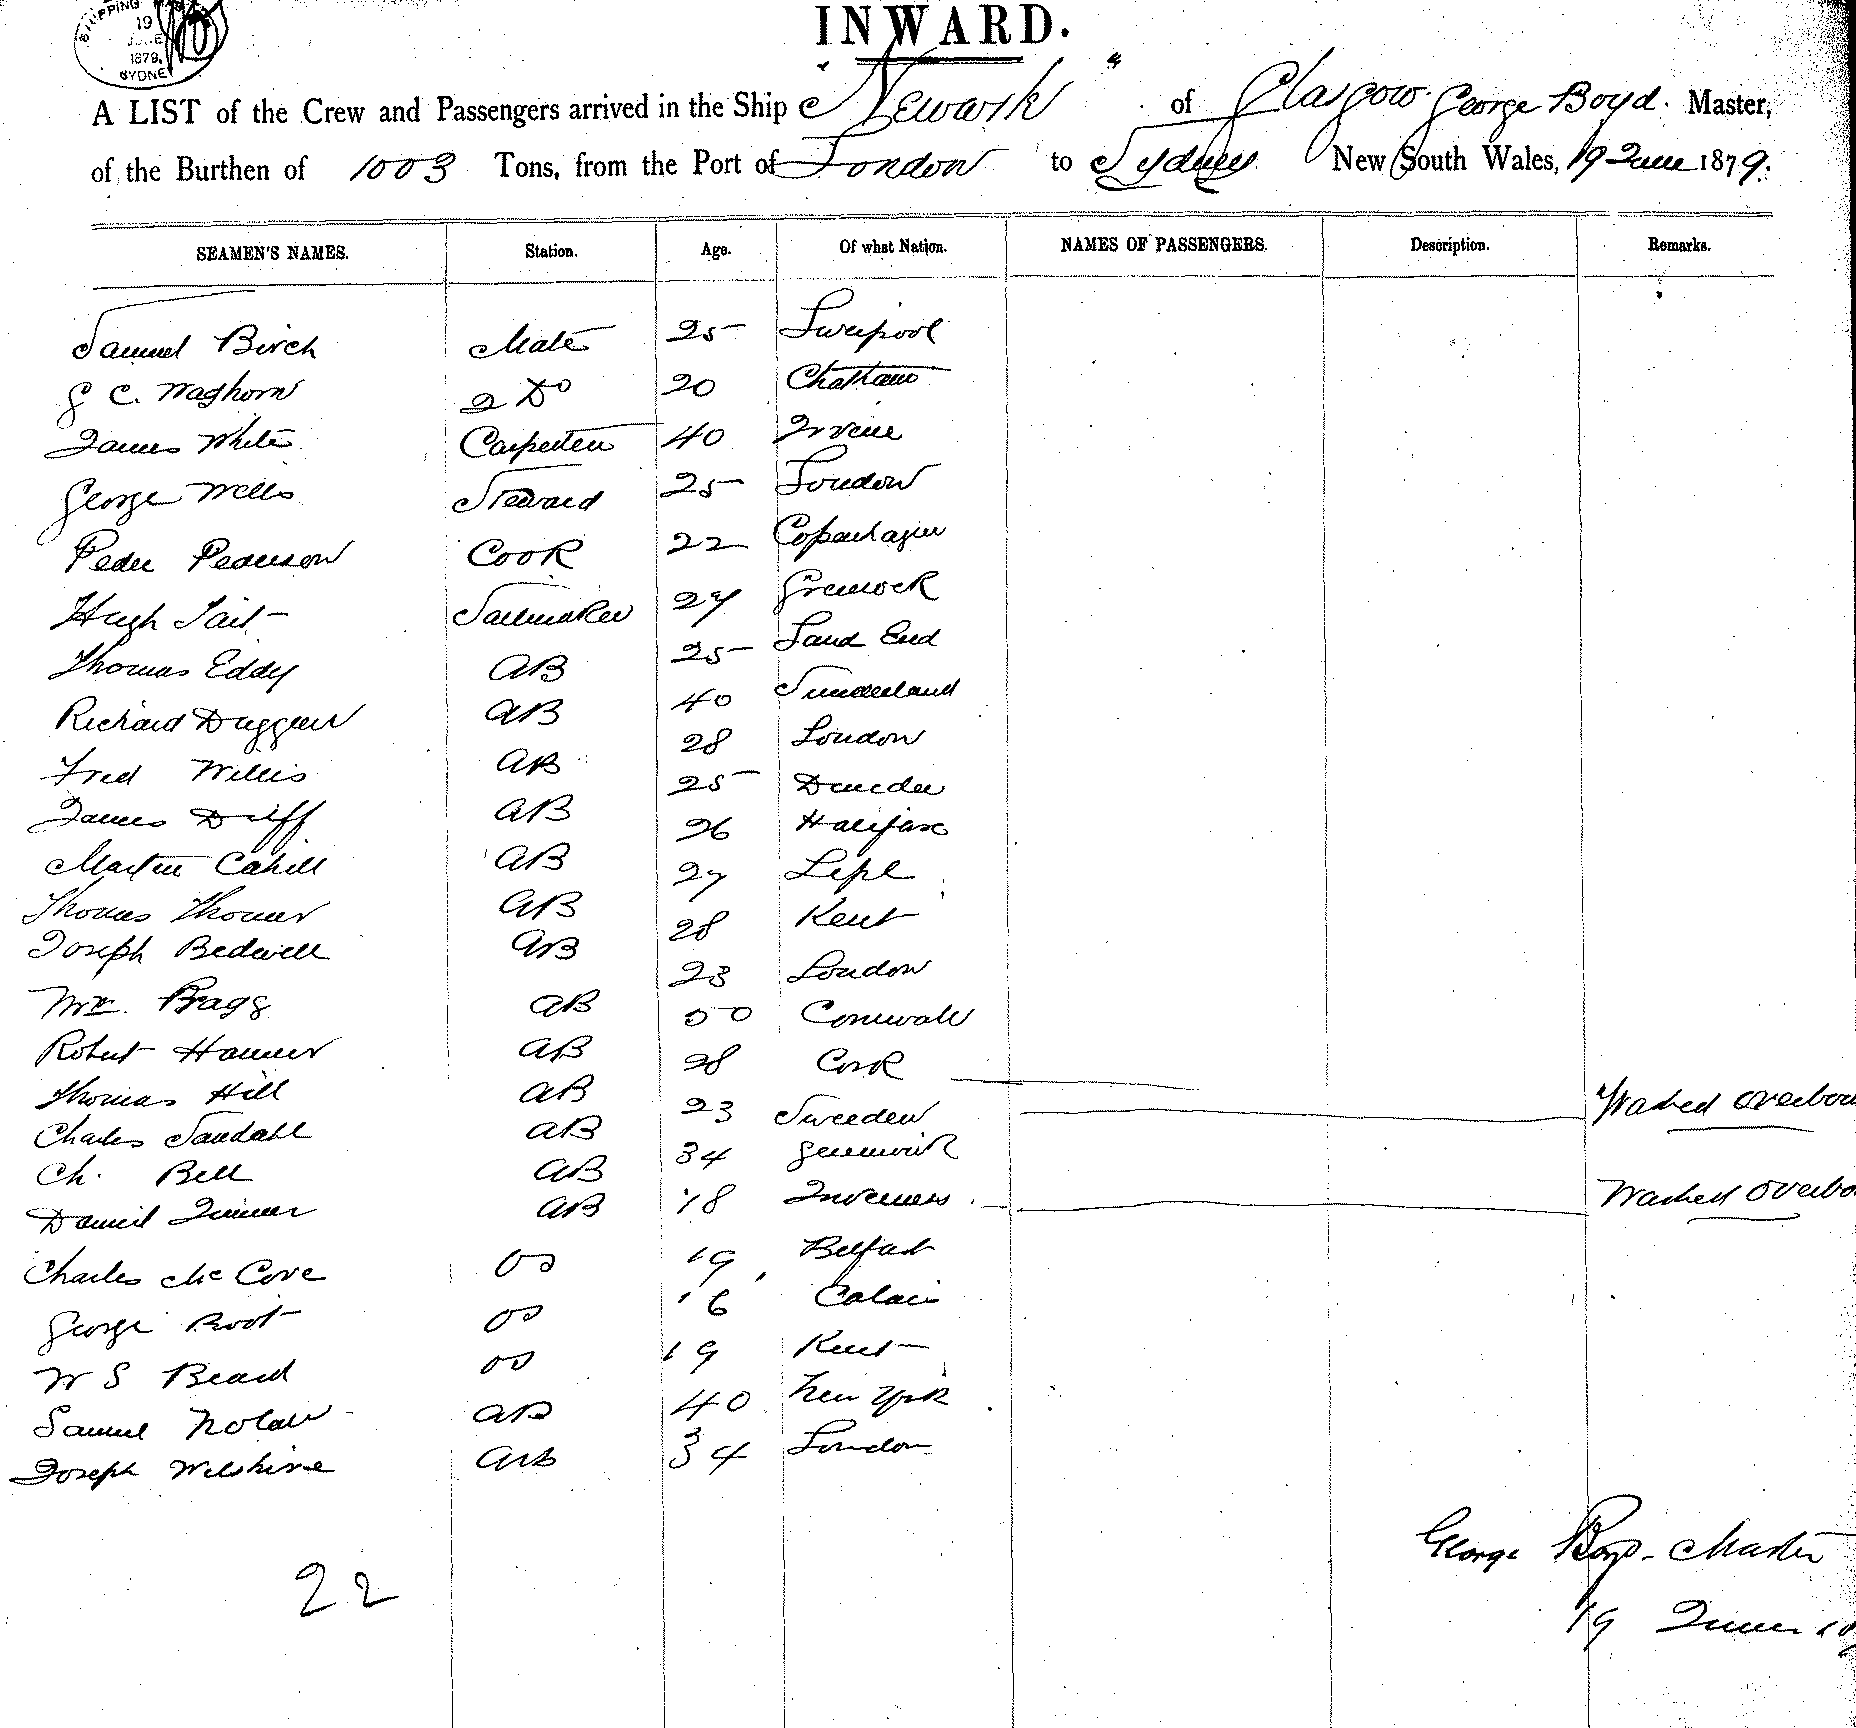 SHIPPING MAS
19
JUNE
1879
SYDNEY
INWARD.
A LIST of the Crew and Passengers arrived in the Ship "Newark" of Glasgow George Boyd. Master,
of the Burthen of 1003 Tons, from the Port of London to Sydney New South Wales, 19 June 1879.
SEAMEN'S NAMES. Station. Age. Of what Nation. NAMES OF PASSENGERS. Description. Remarks.
Samuel Birch Mate 25 Liverpool
G C. Waghorn 2 Do 20 Chatham
James White Carpenter 40 Irvine
George Wells Steward 25 London
Peder Pederson Cook 22 Copenhagen
Hugh Tait Sailmaker 27 Greenock
Thomas Eddy AB 25 Land End
Richard Duggan AB 40 Sunderland
Fred Willis AB 28 London
James Duff AB 25 Dundee
Martin Cahill AB 26 Halifax
Thomas AB 27
Joseph Bedwell AB 28 Kent
Wm. Bragg AB 23 London
Robert AB 00 Cornwall
Thomas Hill AB 28 Cork
Charles Sandahl AB 23 Sweeden Washed overboa
Ch. Bell AB 34 Greenwich
Daniel AB 18 Inverness Washed overbo
Charles McCove OS 19 Belfast
George Root OS 16 Calais
W S Beard OS 19 Kent
Samuel Nolan AB 40 New York
Joseph Wilshire AB 34 London
George Boyd - Master
22
19 June 18